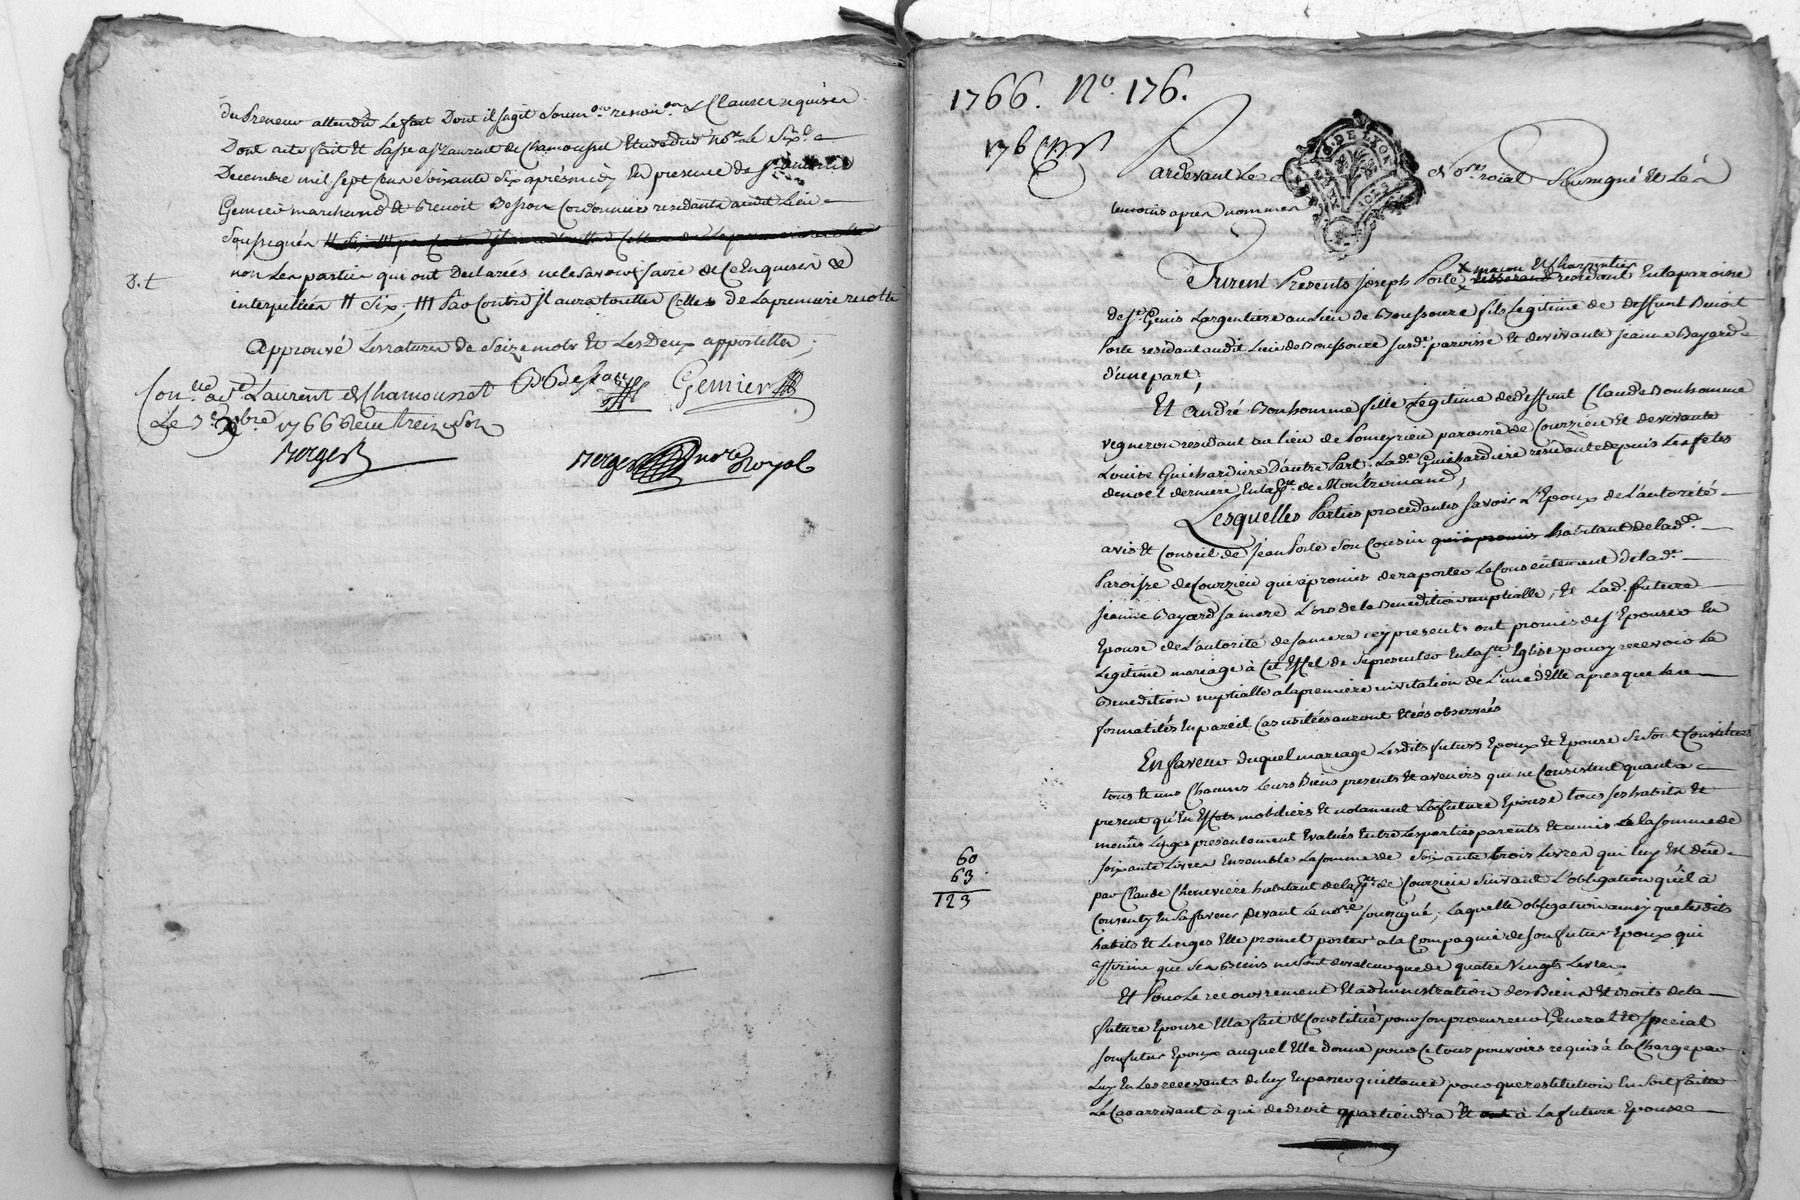 du Preneur attendu Le fait Dont il sagit Soum.on renon.on & Clauses requises
Dont acte fait et Passé a St Laurent de Chamousset Etude du no.re le Six.e
Decembre mil sept cent soixante Six aprés midy En presence de
Gemier marchand et Benoit Besson Cordonnier residants audit Lieu
Soussignés
non Les parties qui ont Declarées ne le savoir faire de ce Enquises &
D. t
interpellées # Six; ### Pao Contre Il aura toutter Celles de La premiere recolte
Approuvé Les ratures de Seize mots et Les Deux appostilles;
Con.llé a St Laurent de Chamousset
B Besson Gemier
Le 7.e Xbre 1766 Reçu treize Sols
Berger
Berger no.re Royal
1766. No. 176.
176
A. DE LYON
Pardevant Le No.re roial Soussigné et Les
temoins apres nommés
Furent Presents Joseph Porte x maçon Et Charpentier residant En la paroisse
de St. Genis Largentiere au Lieu de Boussoure fils Legitime de deffunt Benoit
Porte residant audit Lieu de Boussoure susd.e paroisse et de vivante Jeanne Bayard
d'une part;
Et André Bonhomme fille Legitime de deffunt Claude Bonhomme
vigneron residant au lieu de Pomeyrieu paroisse de Courzieu et de vivante
Louise Guichardiere D'autre Part. Lad.e Guichardiere residante depuis Les fetes
de noel derniere En la p.sse de Montromand;
Lesquelles Parties procedantes Savoir L'Epoux de l'autorité
avis et Conseil de Jean Porte Son Cousin qui a promis habitant de lad.e
Paroisse de Courzieu qui a promis de raporter Le Consentement de lad.e
Jeanne Bayard sa mere L'ors de la Benediction nuptialle, Et Lad. future
Epouse de L'autorité de sa mere icy presente ont promis de s'Epouser En
Legitime mariage à Cet Effet de Se presenter En la s.te Eglise pour y recevoir la
Benediction nuptialle a la premiere invitation de L'une d'Elle apres que Les
formalités En pareil Cas usitées auront Etées observées
En faveur Duquel mariage Lesdits futurs Epoux et Epouse Se Sont Constitués
tous et uns Chacuns Leurs Biens presents et avenirs qui ne Consistent quant a
present qu'En Effets mobiliers et notament La future Epouse tous ses habits et
menus Linges presentement Evalués Entre Les parties parents et amis a la somme de
soixante Livres Ensemble La somme de Soixante trois Livres qui luy Est düe
60
63
123
par Claude Cheneviere habitant de la p.sse de Courzieu Suivant L'obligation qu'il à
Consenty En Sa faveur Devant Le no.re soussigné; Laquelle obligation ainsy que lesdits
habits et Linges Elle promet porter a la Compagnie de Son futur Epoux qui
affirme que Ses Biens ne Sont de valeur que de quatre Vingts Livres
Et Pour Le recouvrement Et administration des Biens et droits de la
future Epouse Ella fait et Constitué pour son procureur General et special
Son futur Epoux auquel Elle donne pour Ce tous pouvoirs requis à la Charge par
Luy En Les recevants de luy En passer quittance pour que restitution En Soit faite
Le Cas arrivant à qui de droit appartiendra Et à La future Epouse